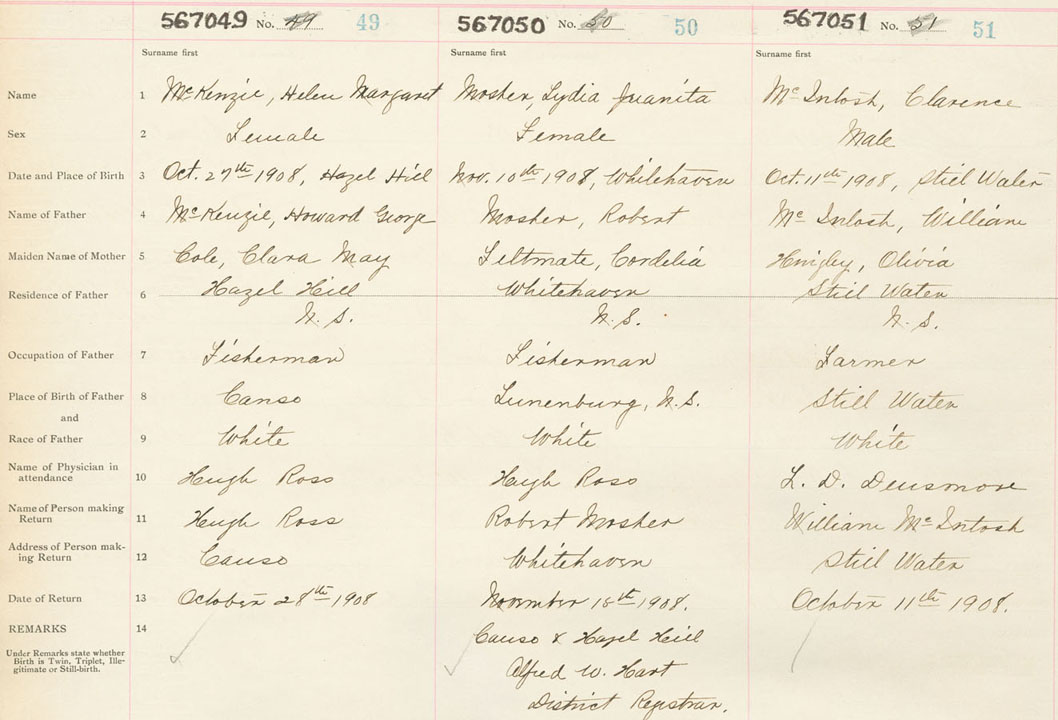 567049 No. 49 49 567050 No. 50 50 567051 No. 51 51
Surname first Surname first Surname first
Name 1 McKenzie, Helen Margaret Mosher, Lydia Juanita McIntosh, Clarence
Sex 2 Female Female Male
Date and Place of Birth 3 Oct. 27th 1908, Hazel Hill Nov. 10th 1908, Whitehaven Oct. 11th 1908, Still Water
Name of Father 4 McKenzie, Howard George Mosher, Robert McIntosh, William
Maiden Name of Mother 5 Cole, Clara May Feltmate, Cordelia Olivia
Residence of Father 6 Hazel Hill Whitehaven Still Water
N.S. N.S. N.S.
Occupation of Father 7 Fisherman Fisherman Farmer
Place of Birth of Father 8 Canso Lunenburg, N.S. Still Water
and
Race of Father 9 White White White
Name of Physician in
attendance 10 Hugh Ross Hugh Ross L. D. Densmore
Name of Person making
Return 11 Hugh Ross Robert Mosher William McIntosh
Address of Person mak-
ing Return 12 Canso Whitehaven Still Water
Date of Return 13 October 28th 1908 November 18th 1908. October 11th 1908.
REMARKS 14 Canso & Hazel Hill
Under Remarks state whether
Birth is Twin, Triplet, Ille-
gitimate or Still-birth.
Alfred W. Hart
District Registrar.